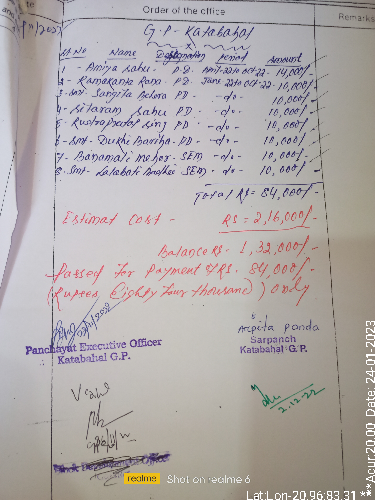 Order of the office
Remarks
G.P - Katabahal
Sl. No Name Designation period Amount
1 - Amiya Sahu - P.D. April-22 to Oct-22 - 14,000/-
2 - Ramakanta Rana - P.D. June-22 to Oct-22 - 10,000/-
3 - Smt - Sangita Behera PD - -do- 10,000/-
4 - Sitaram Sahu PD - -do- 10,000/-
5 - PD - -do- 10,000/-
6 - Smt - Dukhi Bariha - PD - -do- 10,000/-
7 - Banamali Meher - SEM - -do- 10,000/-
8 - Smt - SEM - -do- 10,000/-
Total RS = 84,000/-
Estimat Cost - RS = 2,16,000/-
Balance RS - 1,32,000/-
Passed for Payment of RS. 84,000/-
(Rupees Eighty Four thousand) Only
Panchayat Executive Officer
Katabahal G.P.
Arpita Panda
Sarpanch
Katabahal G.P.
2.12.22
realme Shot on realme 6
Lat:Lon-20.96:83.31 ***Acur:20.00, Date: 24-01-2023